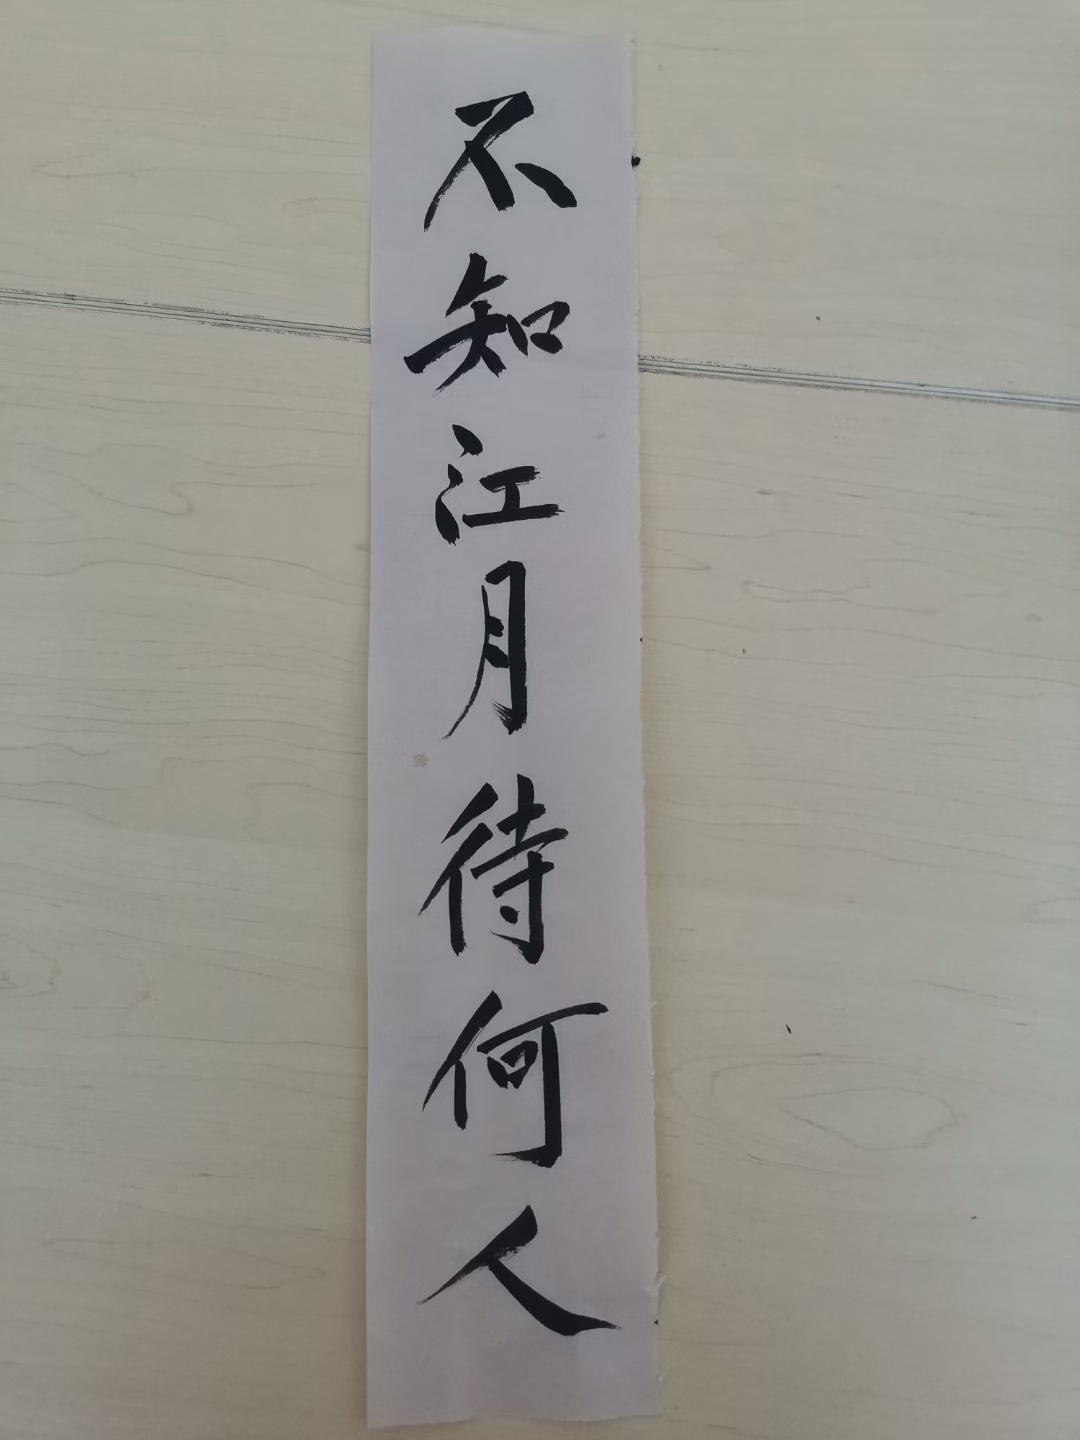 不知江月待何人